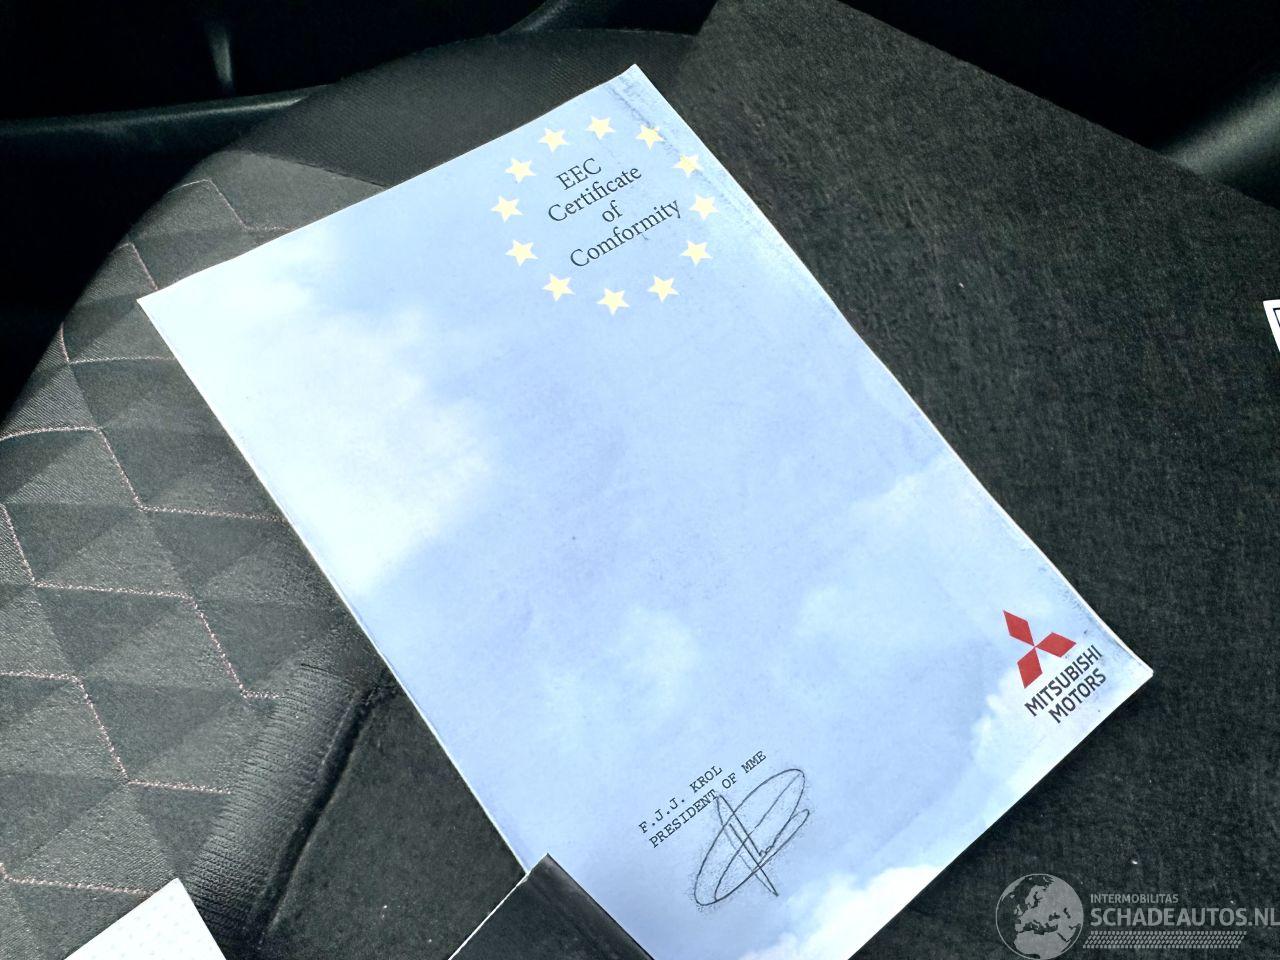 EEC
Certificate
of
Comformity
MITSUBISHI
MOTORS
F.J.J. KROL
PRESIDENT OF MME
INTERMOBILITAS
SCHADEAUTOS.NL